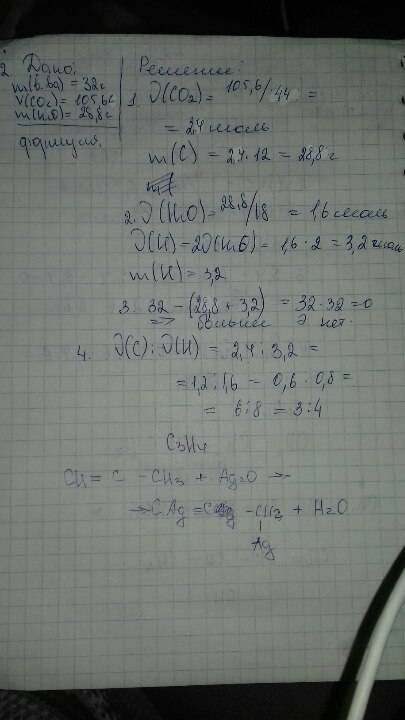 2 Дано:
m(в.ва) = 32г
V(CO₂) = 105,6г
m(H₂O) = 28,8г
формула.
Решение:
1. ν(CO₂) = 105,6/44 =
= 2,4 моль
m(C) = 2,4 · 12 = 28,8 г
2. ν(H₂O) = 28,8/18 = 1,6 моль
ν(H) = 2ν(H₂O) = 1,6 · 2 = 3,2 моль
m(H) = 3,2
3. 32 - (28,8 + 3,2) = 32-32=0
=> больше Э нет.
4. ν(C) : ν(H) = 2,4 : 3,2 =
= 1,2 : 1,6 = 0,6 : 0,8 =
= 6:8 = 3:4
C₃H₄
CH≡C-CH₃ + Ag₂O →
→ CAg≡C -CH₂ + H₂O
Ag